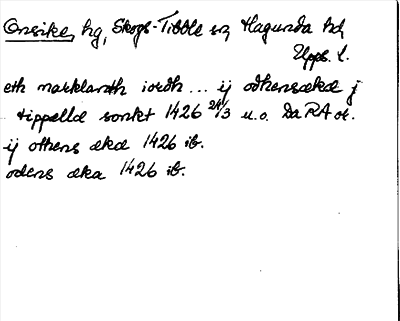 Onsike, hg, Skogs-Tibble sn, Hagunda hd,
Upps. l.
eth marklandh iordh ... ij odhensækæ j
tippellæ sonkt 1426 24/3 u.o. Da RA or.
ij othens ækæ 1426 ib.
odens æka 1426 ib.